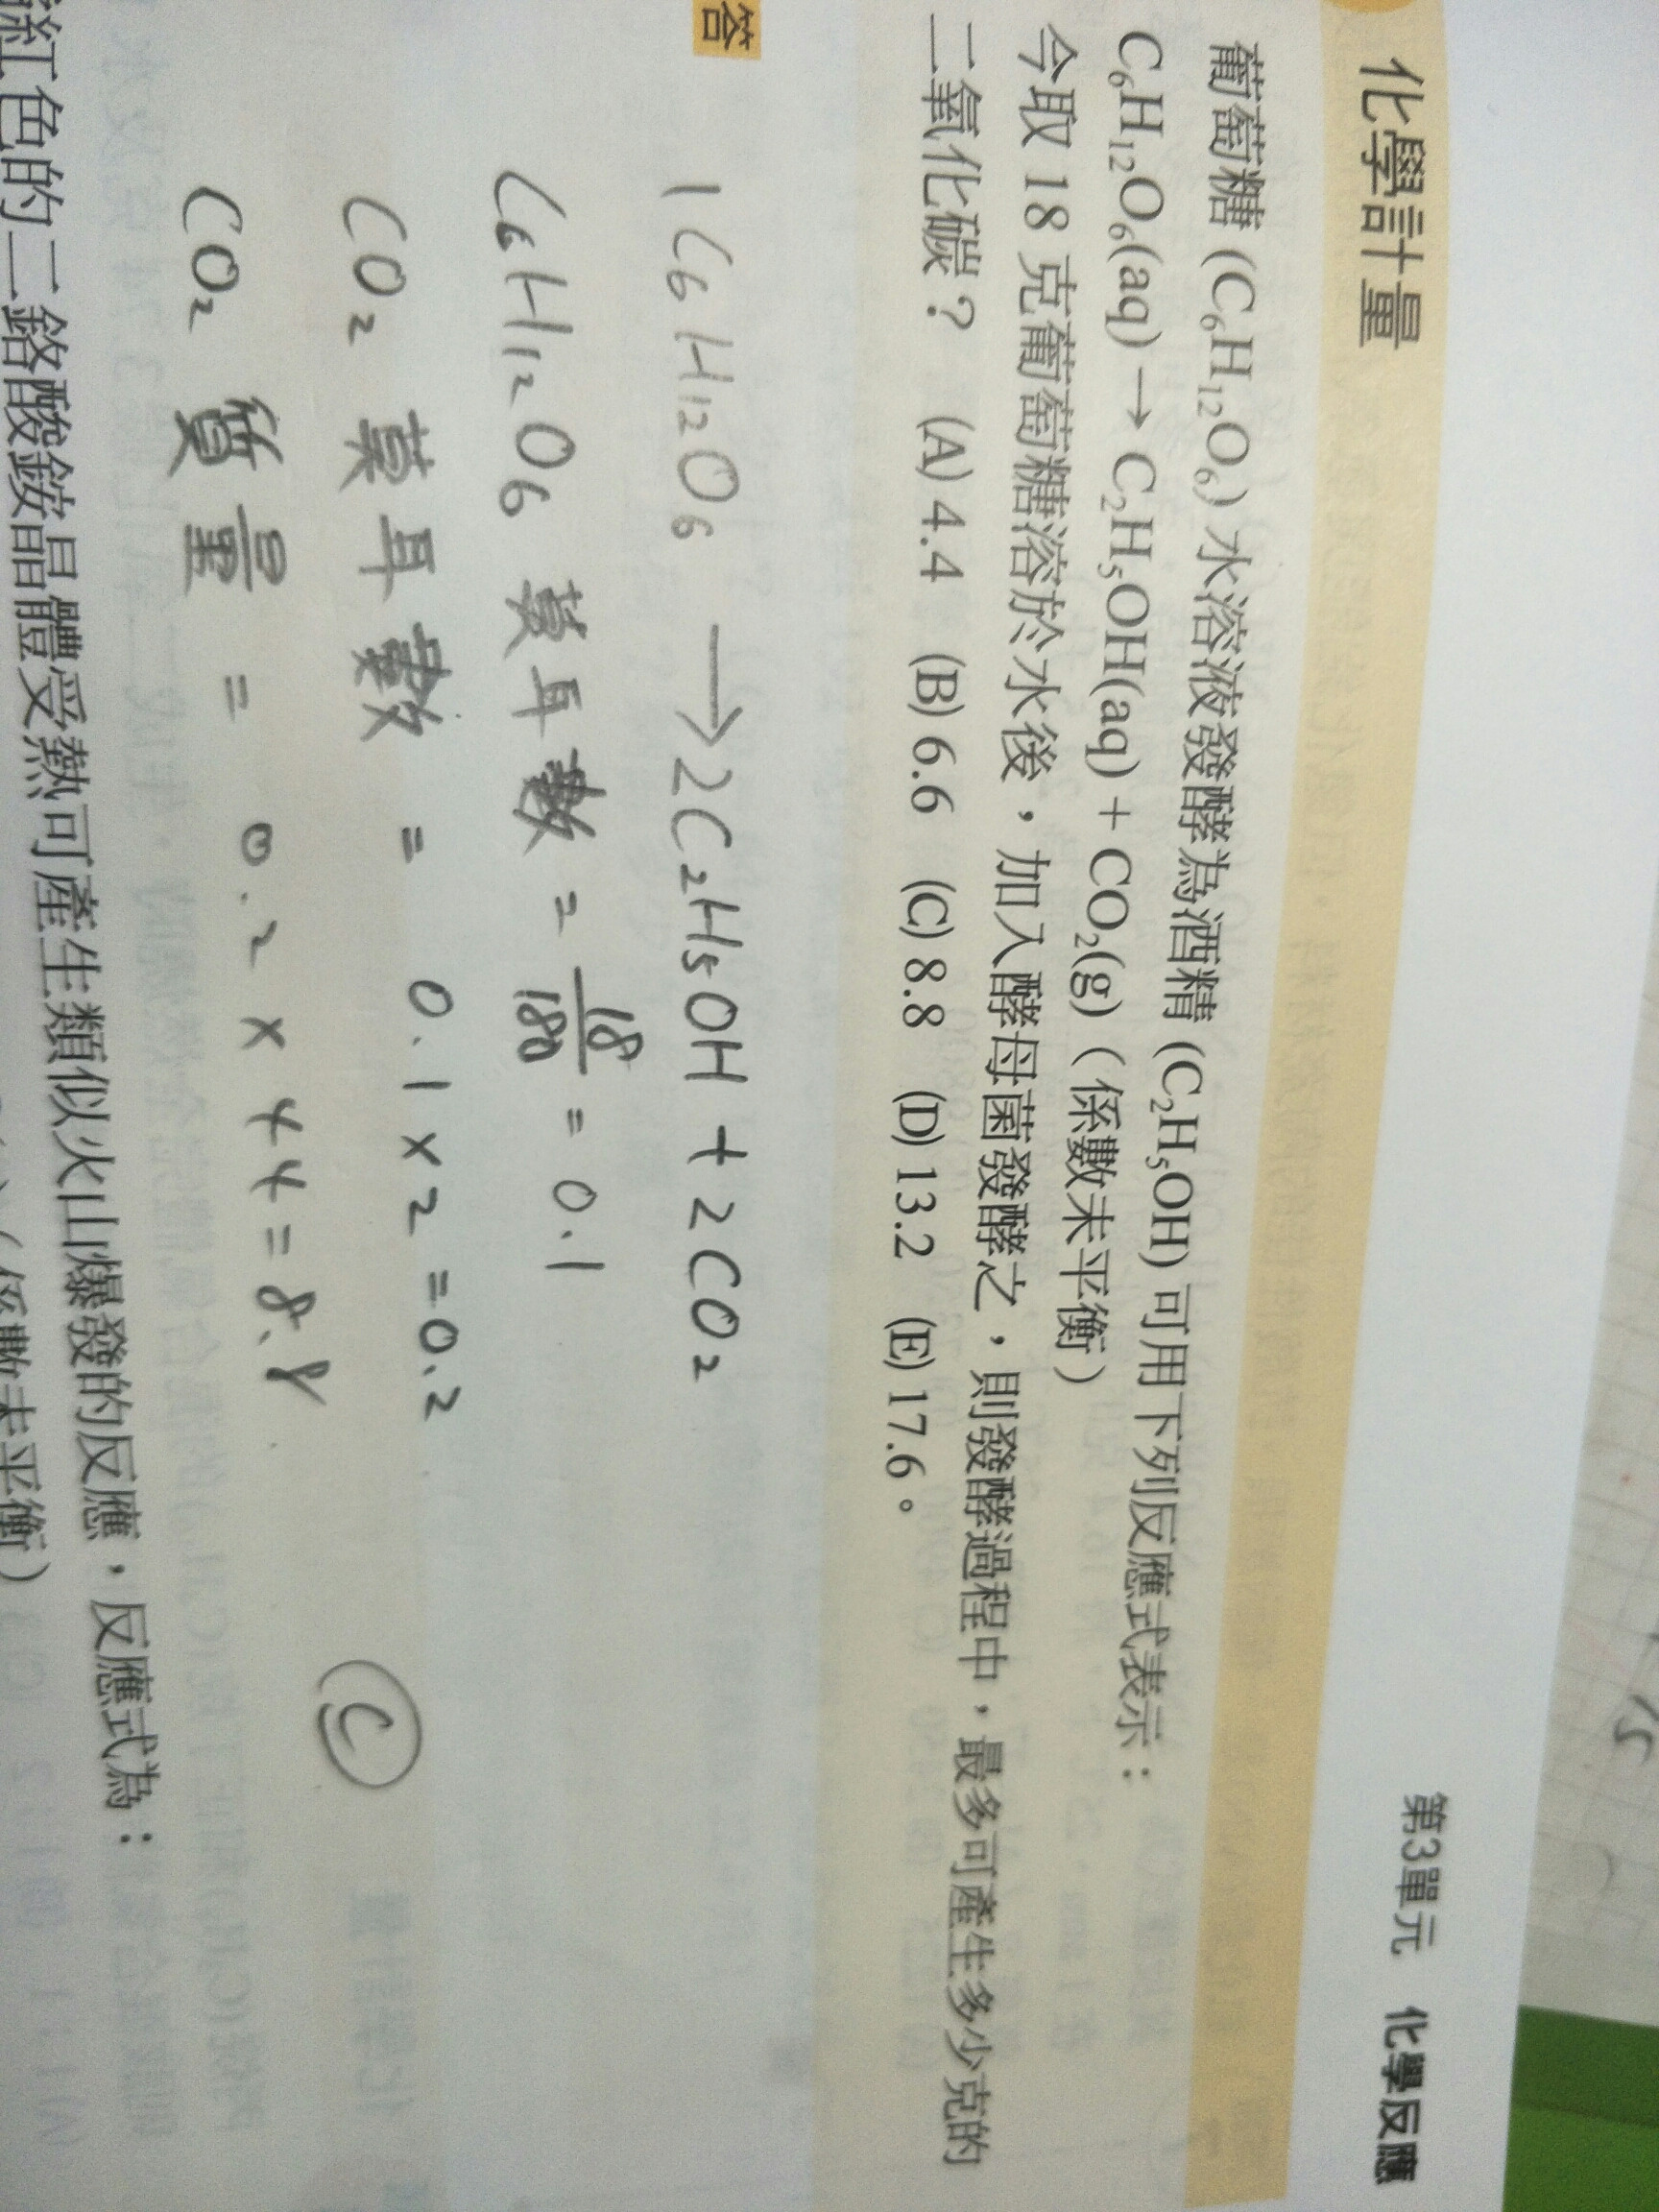 第3單元 化學反應
化學計量
葡萄糖 (C₆H₁₂O₆) 水溶液發酵為酒精 (C₂H₅OH) 可用下列反應式表示：
C₆H₁₂O₆(aq) → C₂H₅OH(aq) + CO₂(g)（係數未平衡）
今取 18 克葡萄糖溶於水後，加入酵母菌發酵之，則發酵過程中，最多可產生多少克的
二氧化碳？ (A) 4.4 (B) 6.6 (C) 8.8 (D) 13.2 (E) 17.6。
答
1C₆H₁₂O₆ → 2C₂H₅OH + 2CO₂
C₆H₁₂O₆ 莫耳數 = 18/180 = 0.1
CO₂ 莫耳數 = 0.1 × 2 = 0.2
CO₂ 質量 = 0.2 × 44 = 8.8
C
紅色的二鉻酸銨晶體受熱可產生類似火山爆發的反應，反應式為：
（係數未平衡）